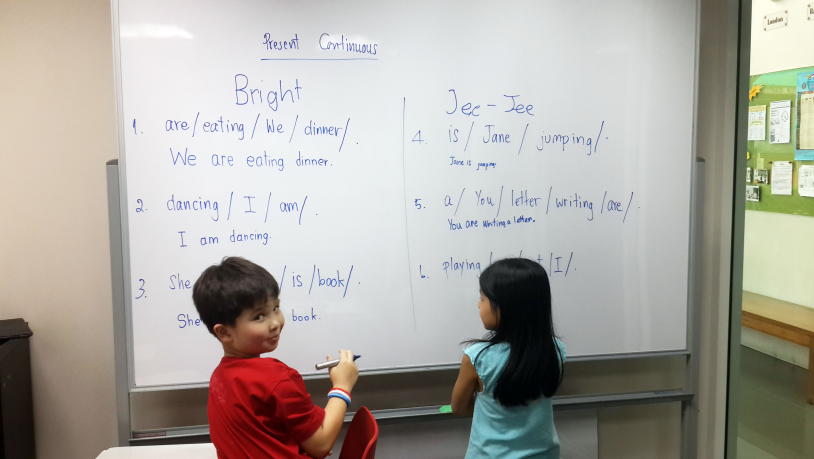 Present Continuous
Bright
1. are / eating / We / dinner / .
We are eating dinner.
2. dancing / I / am / .
I am dancing.
3. She / is / book / .
She book.
Jee - Jee
4. is / Jane / jumping / .
Jane is jumping
5. a / You / letter / writing / are / .
You are writing a letter.
6. playing / / I / .
London